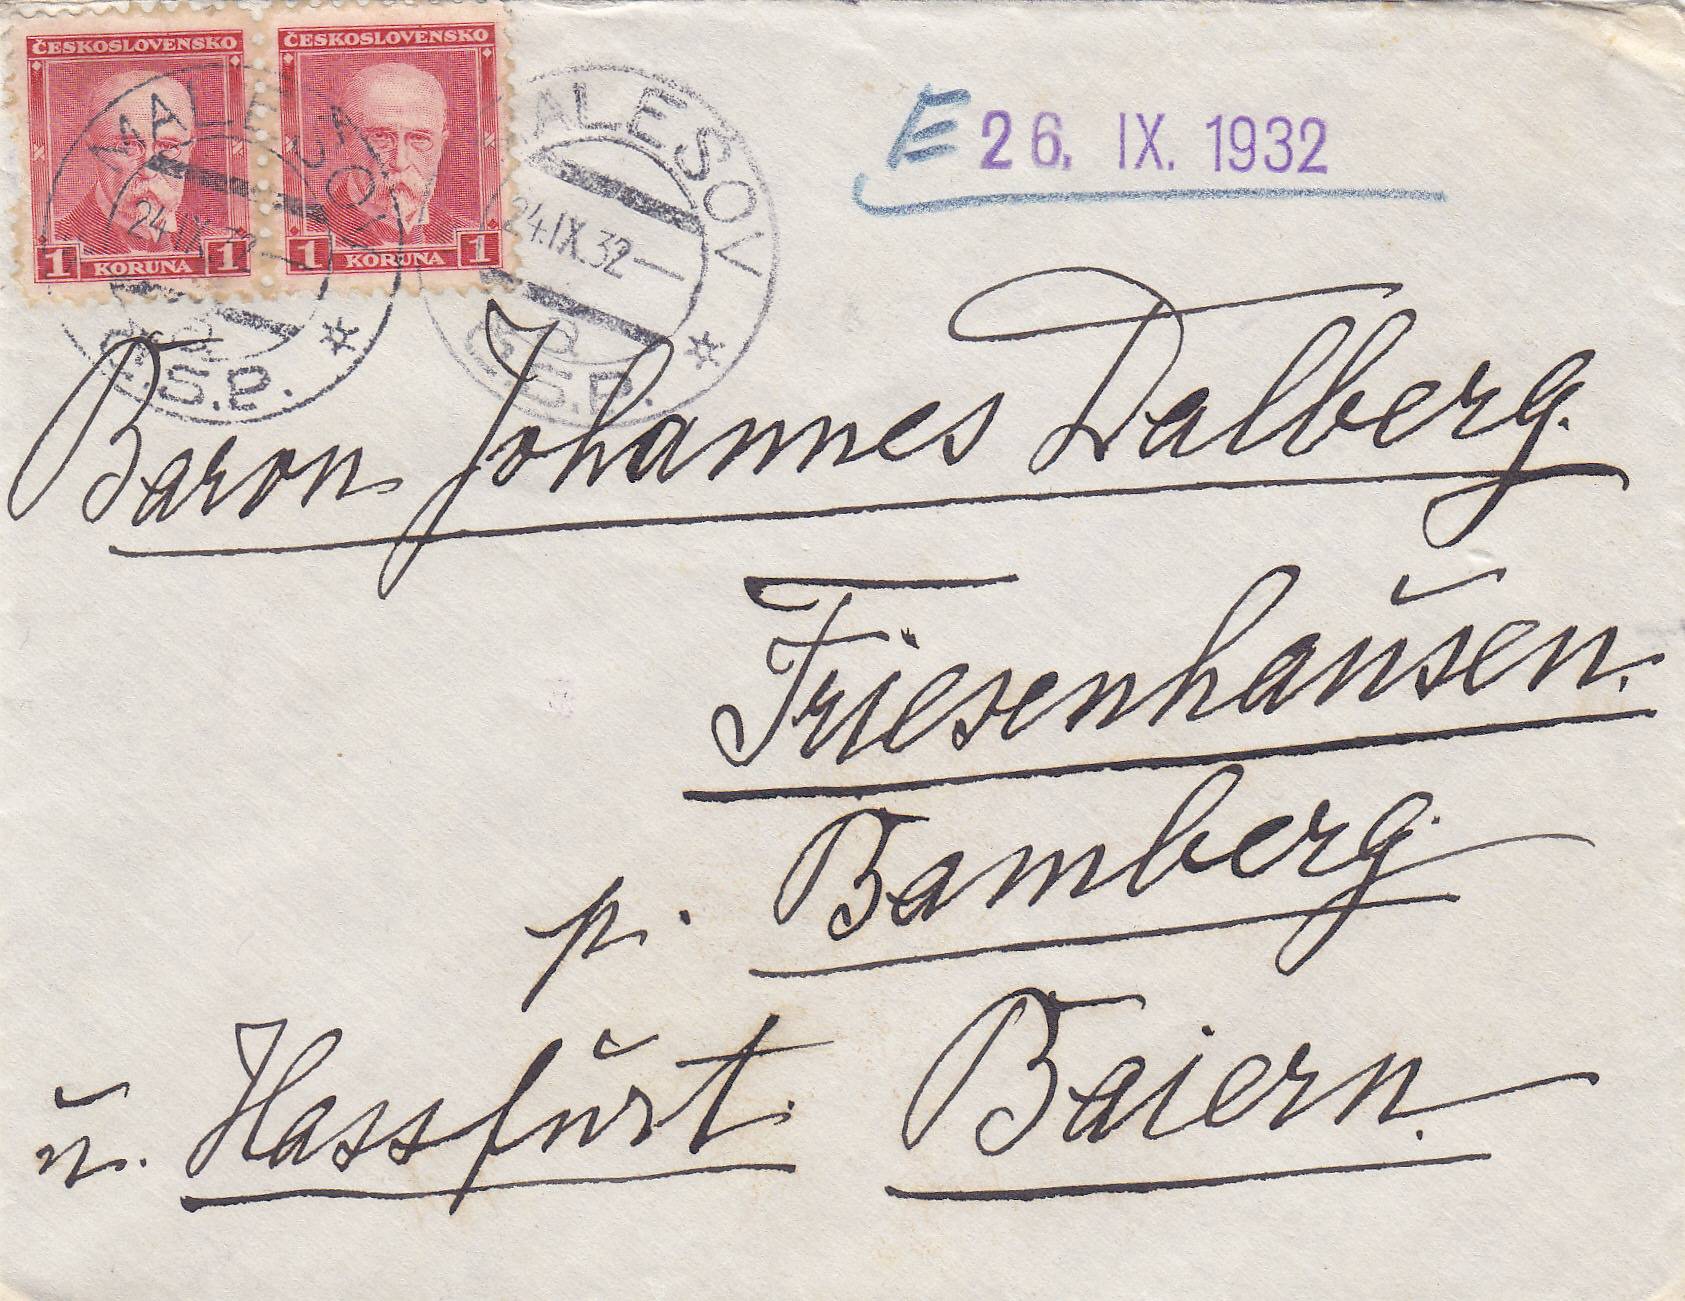 ČESKOSLOVENSKO ČESKOSLOVENSKO
1 KORUNA 1 1 KORUNA 1
MALEŠOV
24.IX.32
Č.S.P.
MALEŠOV
24.IX.32
Č.S.P.
E 26. IX. 1932
Baron Johannes Dalberg.
Friesenhausen.
p. Bamberg.
u. Hassfurt. Baiern.